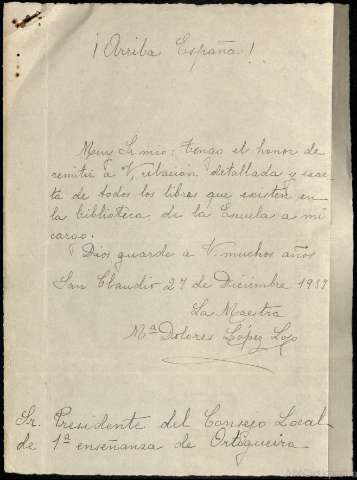 ¡Arriba España!
Muy Sr mio: tengo el honor de
remitir a V. relacion detallada y exac-
ta de todos los libros que existen en
la biblioteca de la Escuela a mi
cargo.
Dios guarde a V. muchos años
San Claudio 27 de Diciembre 193
La Maestra
Mª Dolores López
Sr. Presidente del Consejo Local
de 1ª enseñanza de Ortigueira